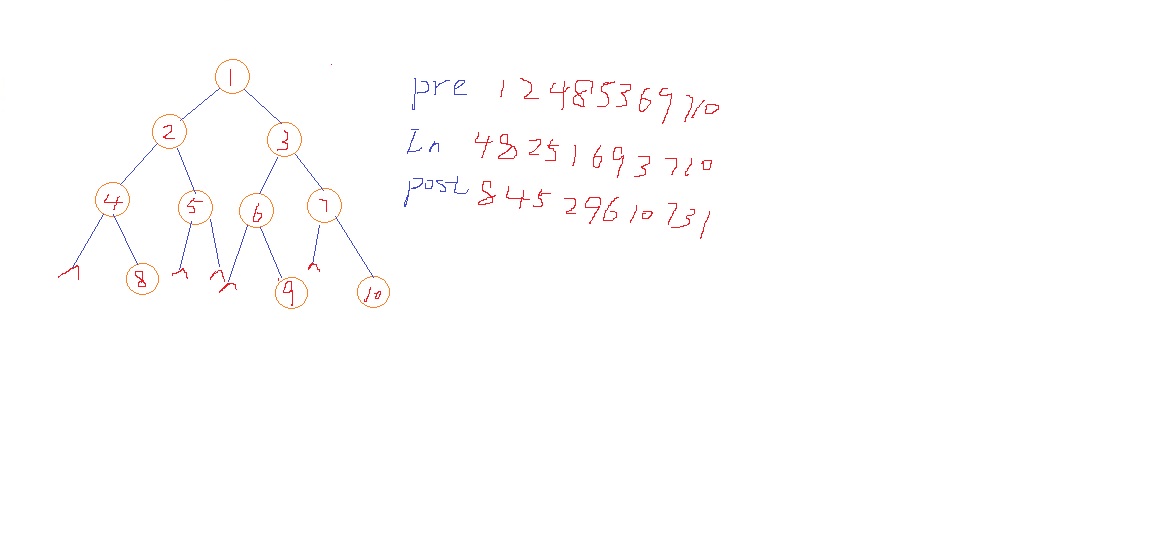 1
2 3
4 5 6 7
^ 8 ^ ^ ^ 9 ^ 10
pre 1 2 4 8 5 3 6 9 7 10
In 4 8 2 5 1 6 9 3 7 10
post 8 4 5 2 9 6 10 7 3 1